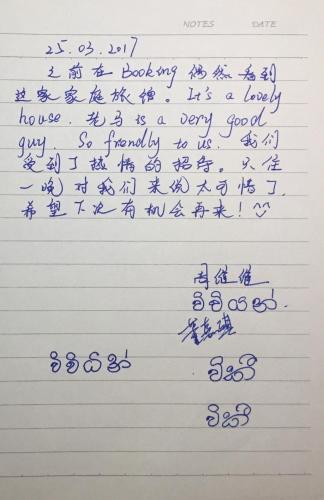 NOTES DATE
25.03.2017
之前在Booking偶然看到
这家家庭旅馆。It's a lovely
house. 老马is a very good
guy. So friendly to us. 我们
受到了热情的招待。只住
一晚对我们来说太可惜了
希望下次有机会再来!
周继继